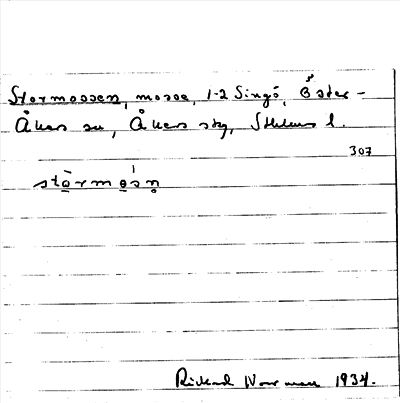 Stormossen, mosse, 1-2 Singö, Öster-
Åkers sn, Åkers skg, Sthlms l.
307
stormosn
Rickard Norrman 1934.